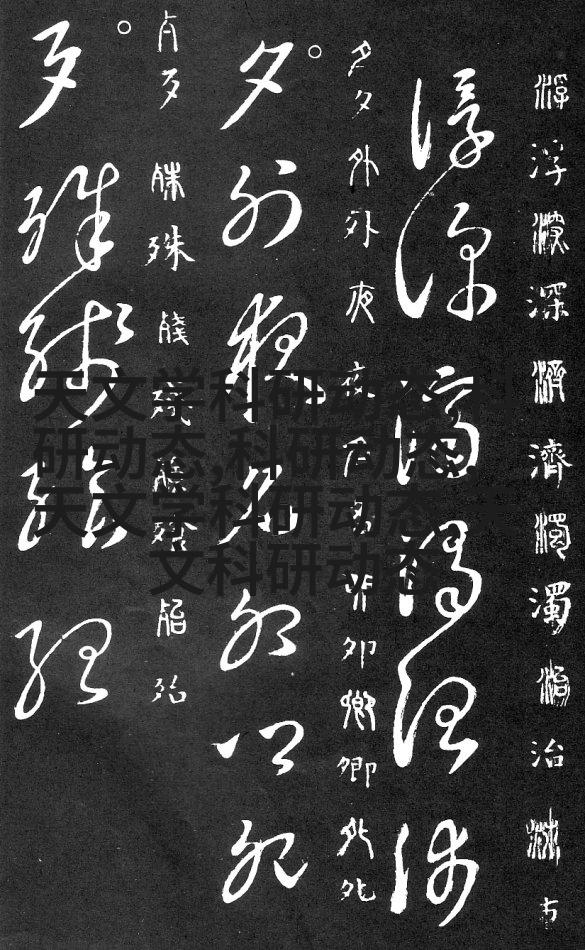 浮浮深深濟濟濁濁治治
浮深濟濁治沛
夕夕外外夜夜名名卯卯卿卿死死
夕外夜名卯卿死
歹歹殊殊殘殘殆殆
歹殊殘殆
天文学科研动态,科
研动态,科研动态,
天文学科研动态,天
文科研动态